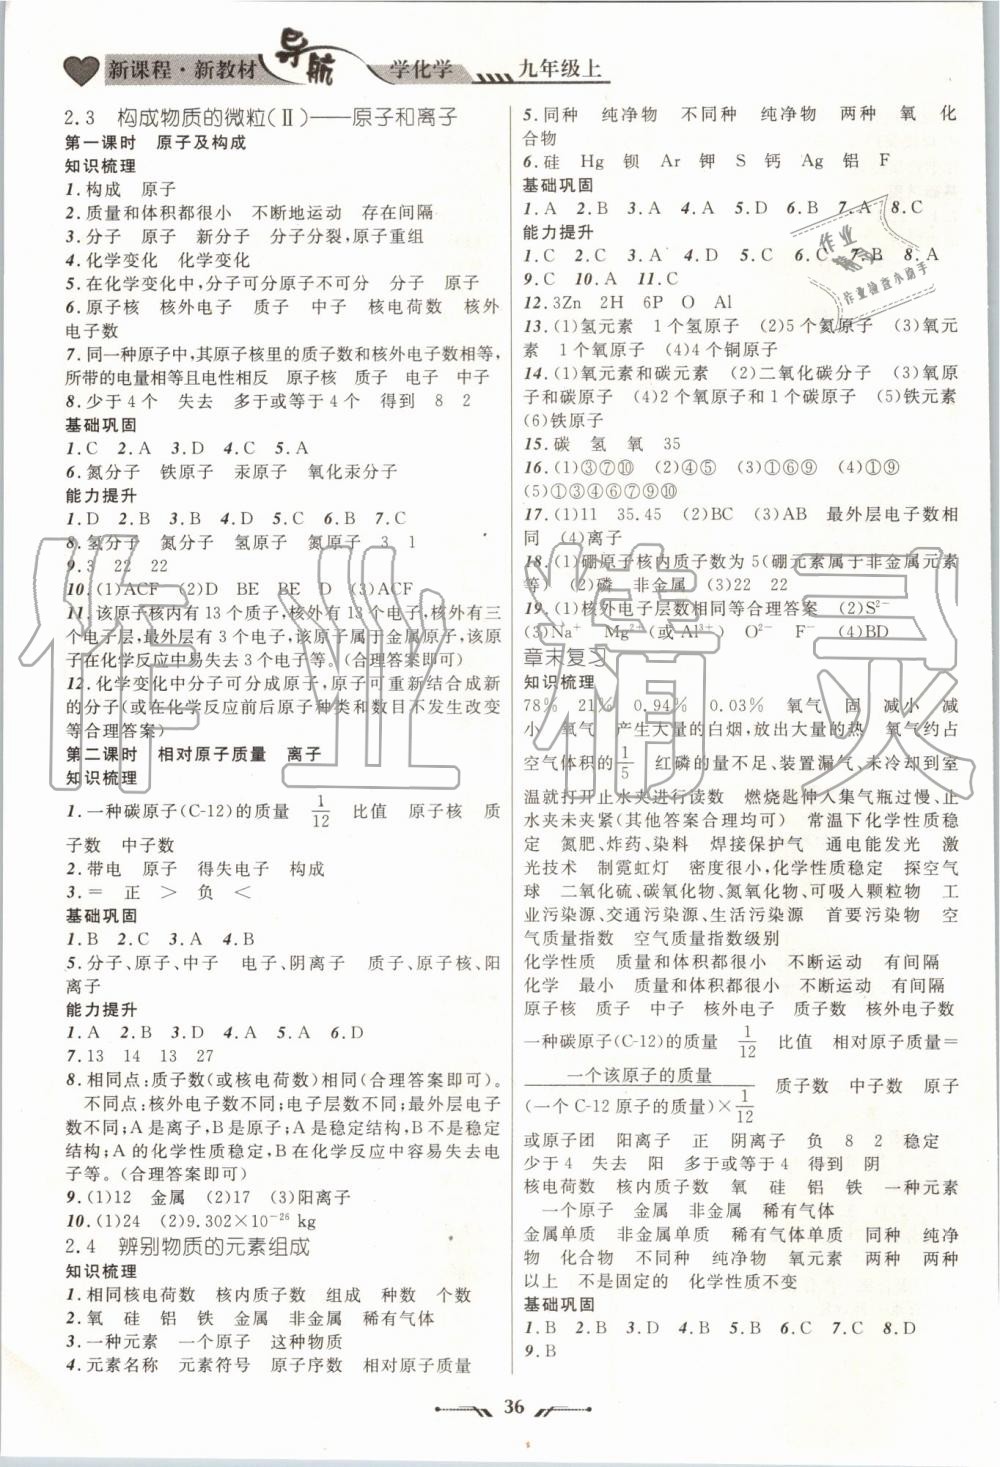 新课程·新教材 导航 学化学 九年级上
2.3 构成物质的微粒(Ⅱ)——原子和离子
第一课时 原子及构成
知识梳理
1.构成 原子
2.质量和体积都很小 不断地运动 存在间隔
3.分子 原子 新分子 分子分裂,原子重组
4.化学变化 化学变化
5.在化学变化中,分子可分原子不可分 分子 原子
6.原子核 核外电子 质子 中子 核电荷数 核外
电子数
7.同一种原子中,其原子核里的质子数和核外电子数相等,
所带的电量相等且电性相反 原子核 质子 电子 中子
8.少于4个 失去 多于或等于4个 得到 8 2
基础巩固
1.C 2.A 3.D 4.C 5.A
6.氮分子 铁原子 汞原子 氧化汞分子
能力提升
1.D 2.B 3.D 4.D 5.D 6.B 7.C
8.氢分子 氮分子 氢原子 氮原子 3 1
9.3 22 22
10.(1)ACF (2)D BE BE D (3)ACF
11.该原子核内有13个质子,核外有13个电子,核外有三
个电子层,最外层有3个电子,该原子属于金属原子,该原
子在化学反应中易失去3个电子等。(合理答案即可)
12.化学变化中分子可分成原子,原子可重新结合成新
的分子(或在化学反应前后原子种类和数目不发生改变
等合理答案)
第二课时 相对原子质量 离子
知识梳理
1.一种碳原子(C-12)的质量 1/12 比值 原子核 质
子数 中子数
2.带电 原子 得失电子 构成
3.= 正 > 负 <
基础巩固
1.B 2.C 3.A 4.B
5.分子、原子、中子 电子、阴离子 质子、原子核、阳
离子
能力提升
1.A 2.B 3.D 4.A 5.A 6.D
7.13 14 13 27
8.相同点:质子数(或核电荷数)相同(合理答案即可)。
不同点:核外电子数不同;电子层数不同;最外层电子
数不同;A是离子,B是原子;A是稳定结构,B不是稳定
结构;A的化学性质稳定,B在化学反应中容易失去电
子等。(合理答案即可)
9.(1)12 金属 (2)17 (3)阳离子
10.(1)24 (2)9.302×10⁻²⁶ kg
2.4 辨别物质的元素组成
知识梳理
1.相同核电荷数 核内质子数 组成 种数 个数
2.氧 硅 铝 铁 金属 非金属 稀有气体
3.一种元素 一个原子 这种物质
4.元素名称 元素符号 原子序数 相对原子质量
5.同种 纯净物 不同种 纯净物 两种 氧 化
合物
6.硅 Hg 钡 Ar 钾 S 钙 Ag 铝 F
基础巩固
1.A 2.B 3.A 4.A 5.D 6.B 7.A 8.C
能力提升
1.C 2.C 3.A 4.D 5.C 6.C 7.B 8.A
9.C 10.A 11.C
12.3Zn 2H 6P O Al
13.(1)氢元素 1个氢原子 (2)5个氦原子 (3)氧元
素 1个氧原子 (4)4个铜原子
14.(1)氧元素和碳元素 (2)二氧化碳分子 (3)氧原
子和碳原子 (4)2个氧原子和1个碳原子 (5)铁元素
(6)铁原子
15.碳 氢 氧 35
16.(1)③⑦⑩ (2)④⑤ (3)①⑥⑨ (4)①⑨
(5)①③④⑥⑦⑨⑩
17.(1)11 35.45 (2)BC (3)AB 最外层电子数相
同 (4)离子
18.(1)硼原子核内质子数为5(硼元素属于非金属元素
等) (2)磷 非金属 (3)22 22
19.(1)核外电子层数相同等合理答案 (2)S²⁻
(3)Na⁺ Mg²⁺(或Al³⁺) O²⁻ F⁻ (4)BD
章末复习
知识梳理
78% 21% 0.94% 0.03% 氧气 固 减小 减
小 氧气 产生大量的白烟,放出大量的热 氧气约占
空气体积的1/5 红磷的量不足、装置漏气、未冷却到室
温就打开止水夹进行读数 燃烧匙伸入集气瓶过慢、止
水夹未夹紧(其他答案合理均可) 常温下化学性质稳
定 氮肥、炸药、染料 焊接保护气 通电能发光 激
光技术 制霓虹灯 密度很小,化学性质稳定 探空气
球 二氧化硫、碳氧化物、氮氧化物、可吸入颗粒物 工
业污染源、交通污染源、生活污染源 首要污染物 空
气质量指数 空气质量指数级别
化学性质 质量和体积都很小 不断运动 有间隔
化学 最小 质量和体积都很小 不断运动 有间隔
原子核 质子 中子 核外电子 质子数 核外电子数
一种碳原子(C-12)的质量 1/12 比值 相对原子质量=
一个该原子的质量/(一个C-12原子的质量)×1/12 质子数 中子数 原子
或原子团 阳离子 正 阴离子 负 8 2 稳定
少于4 失去 阳 多于或等于4 得到 阴
核电荷数 核内质子数 氧 硅 铝 铁 一种元素
一个原子 金属 非金属 稀有气体
金属单质 非金属单质 稀有气体 同种 同种 纯净
物 化合物 不同种 纯净物 氧元素 两种 两种
以上 不是固定的 化学性质不变
基础巩固
1.B 2.B 3.B 4.D 5.B 6.C 7.C 8.D
9.B
36
作业精灵
作业
精灵
作业检查小助手